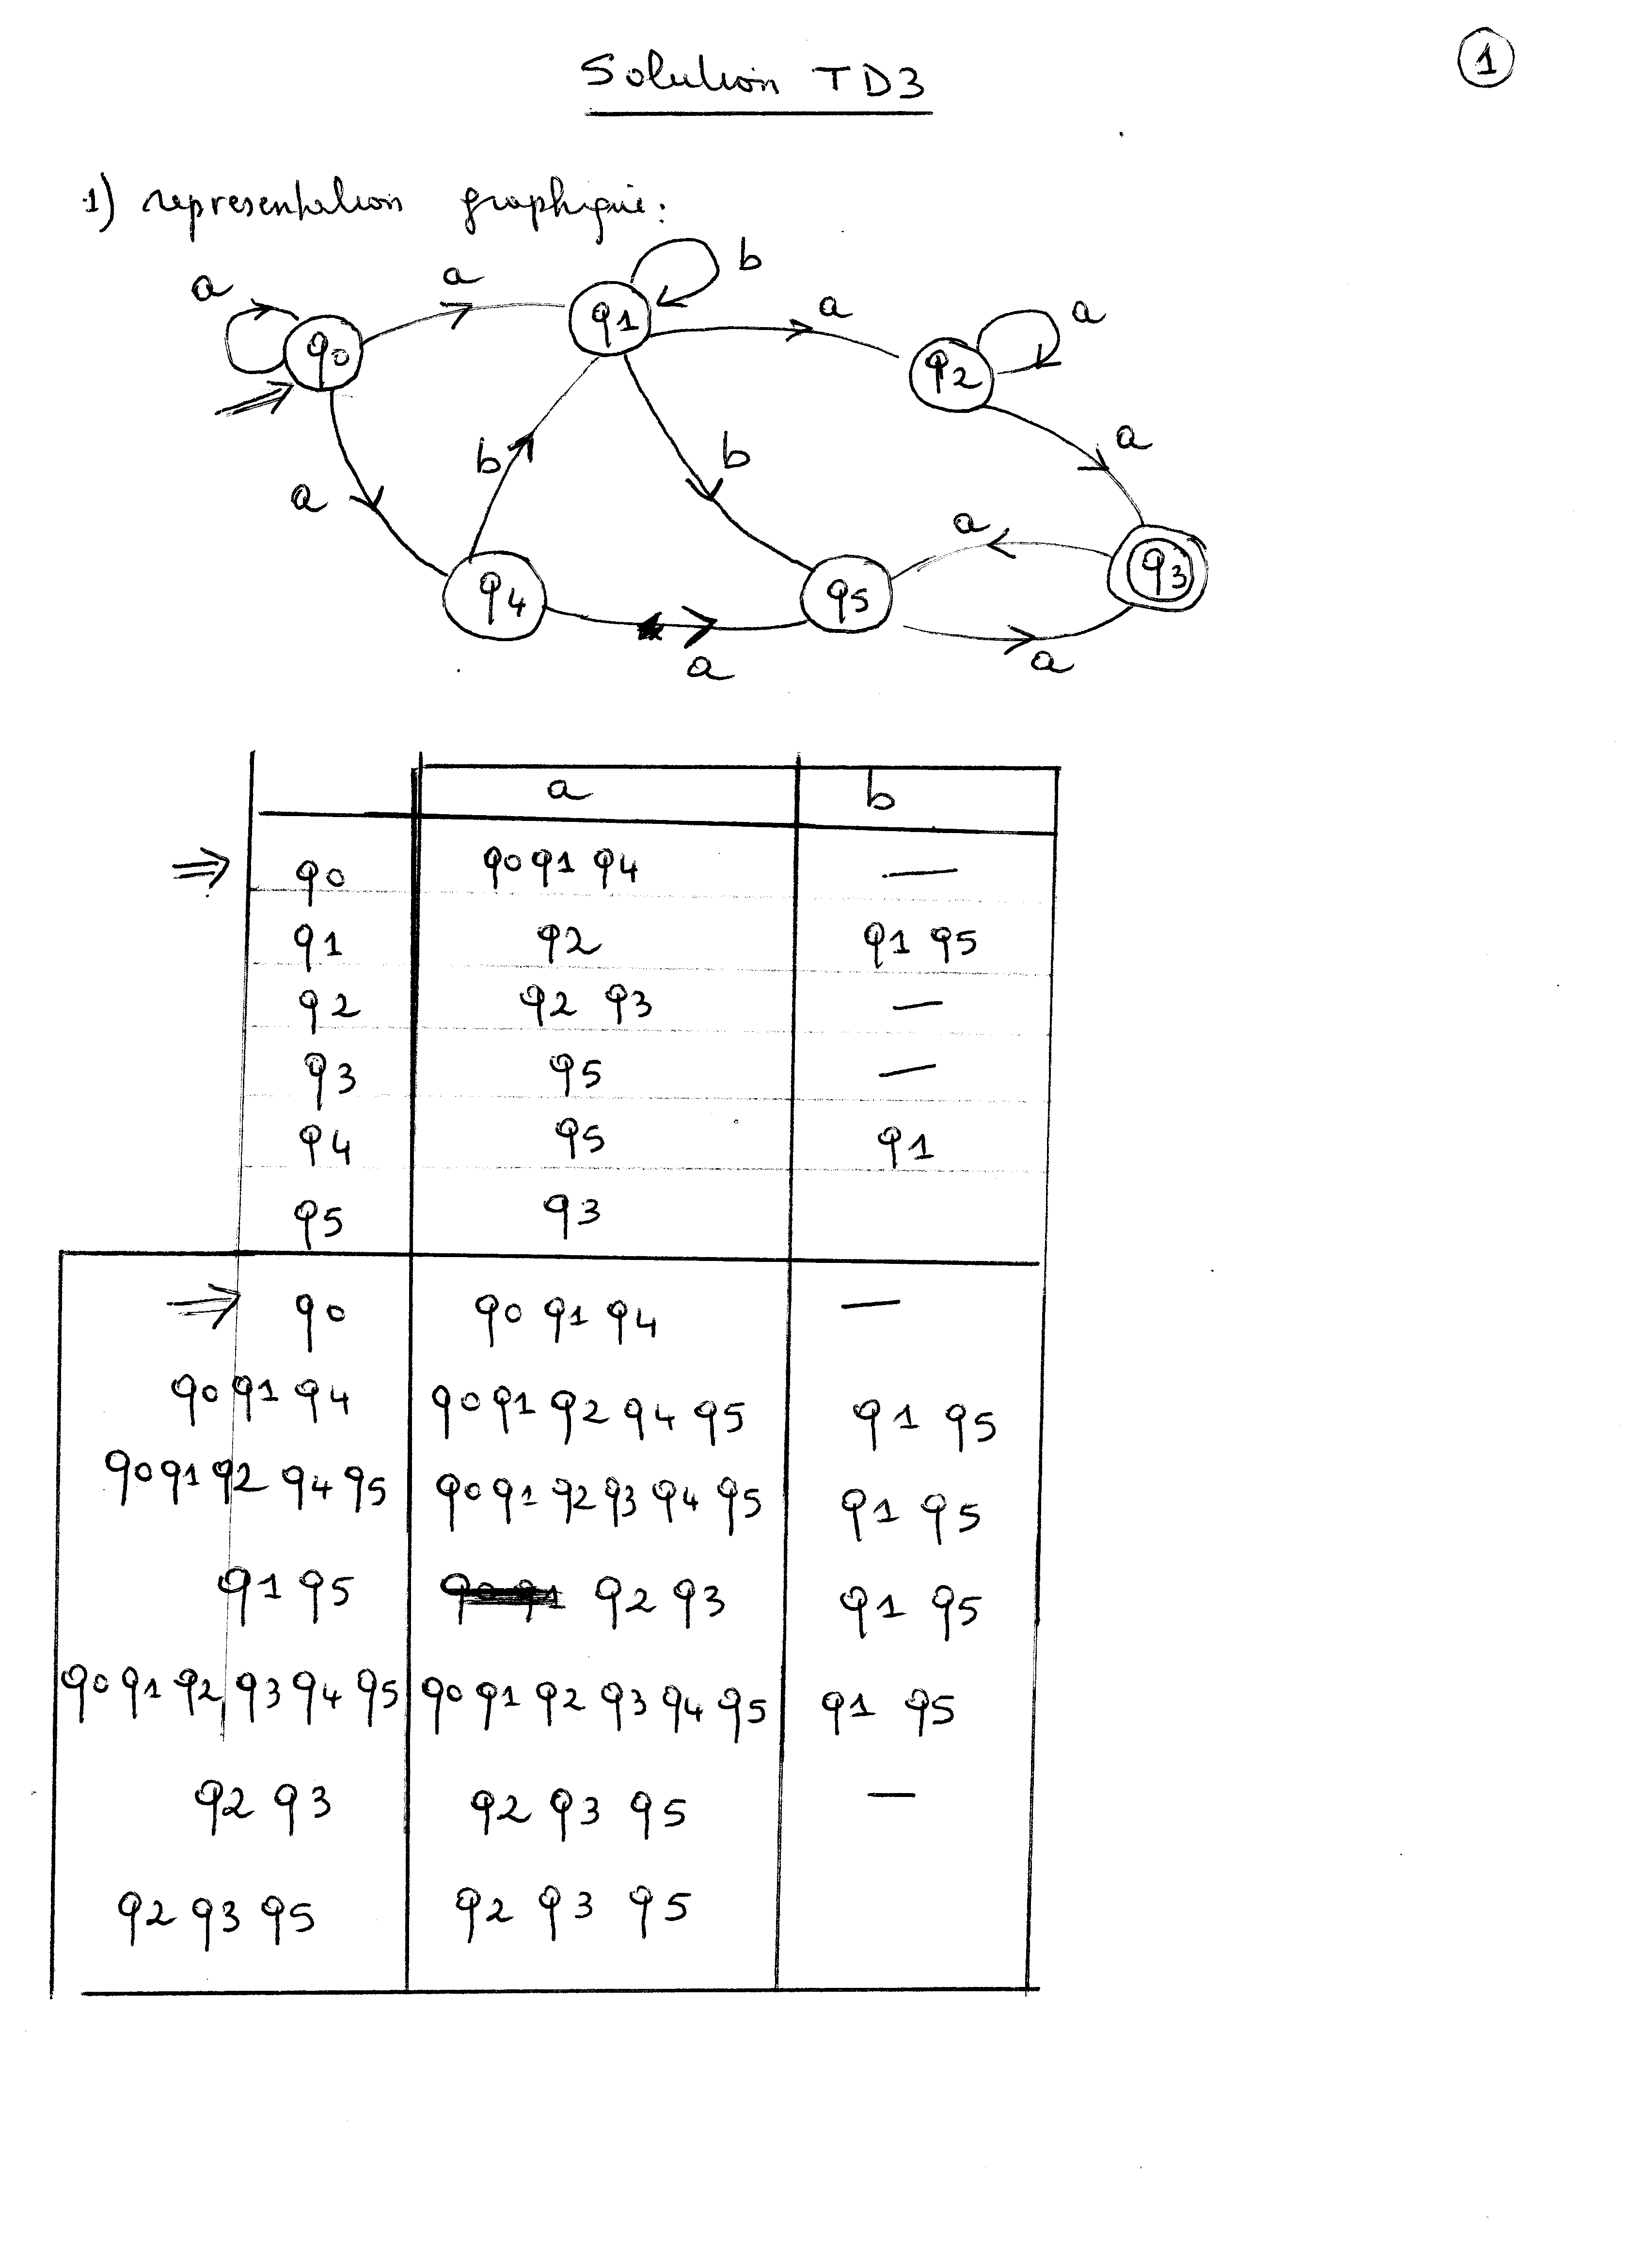 Solution TD3
1
1) representation graphique:
a a b a a
q0 q1 q2
a b b a a
q4 q5 q3
a a
a b
⇒ q0 q0 q1 q4 —
q1 q2 q1 q5
q2 q2 q3 —
q3 q5 —
q4 q5 q1
q5 q3
⇒ q0 q0 q1 q4 —
q0 q1 q4 q0 q1 q2 q4 q5 q1 q5
q0 q1 q2 q4 q5 q0 q1 q2 q3 q4 q5 q1 q5
q1 q5 q2 q3 q1 q5
q0 q1 q2 q3 q4 q5 q0 q1 q2 q3 q4 q5 q1 q5
q2 q3 q2 q3 q5 —
q2 q3 q5 q2 q3 q5